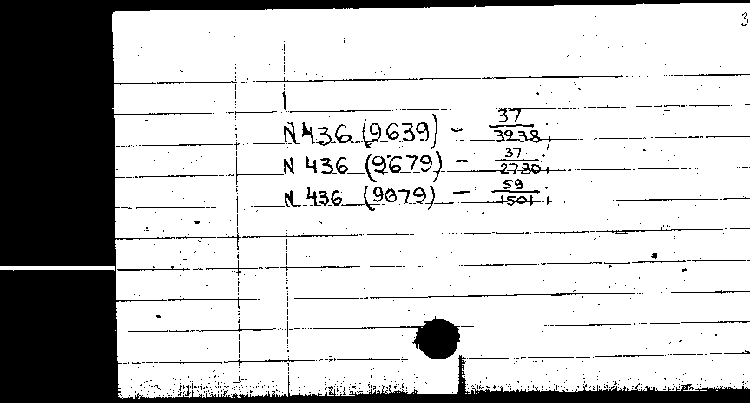 3
N 436 (9639) - 37/3938;
N 436 (9679) - 37/2730;
N 436 (9079) - 59/1501;